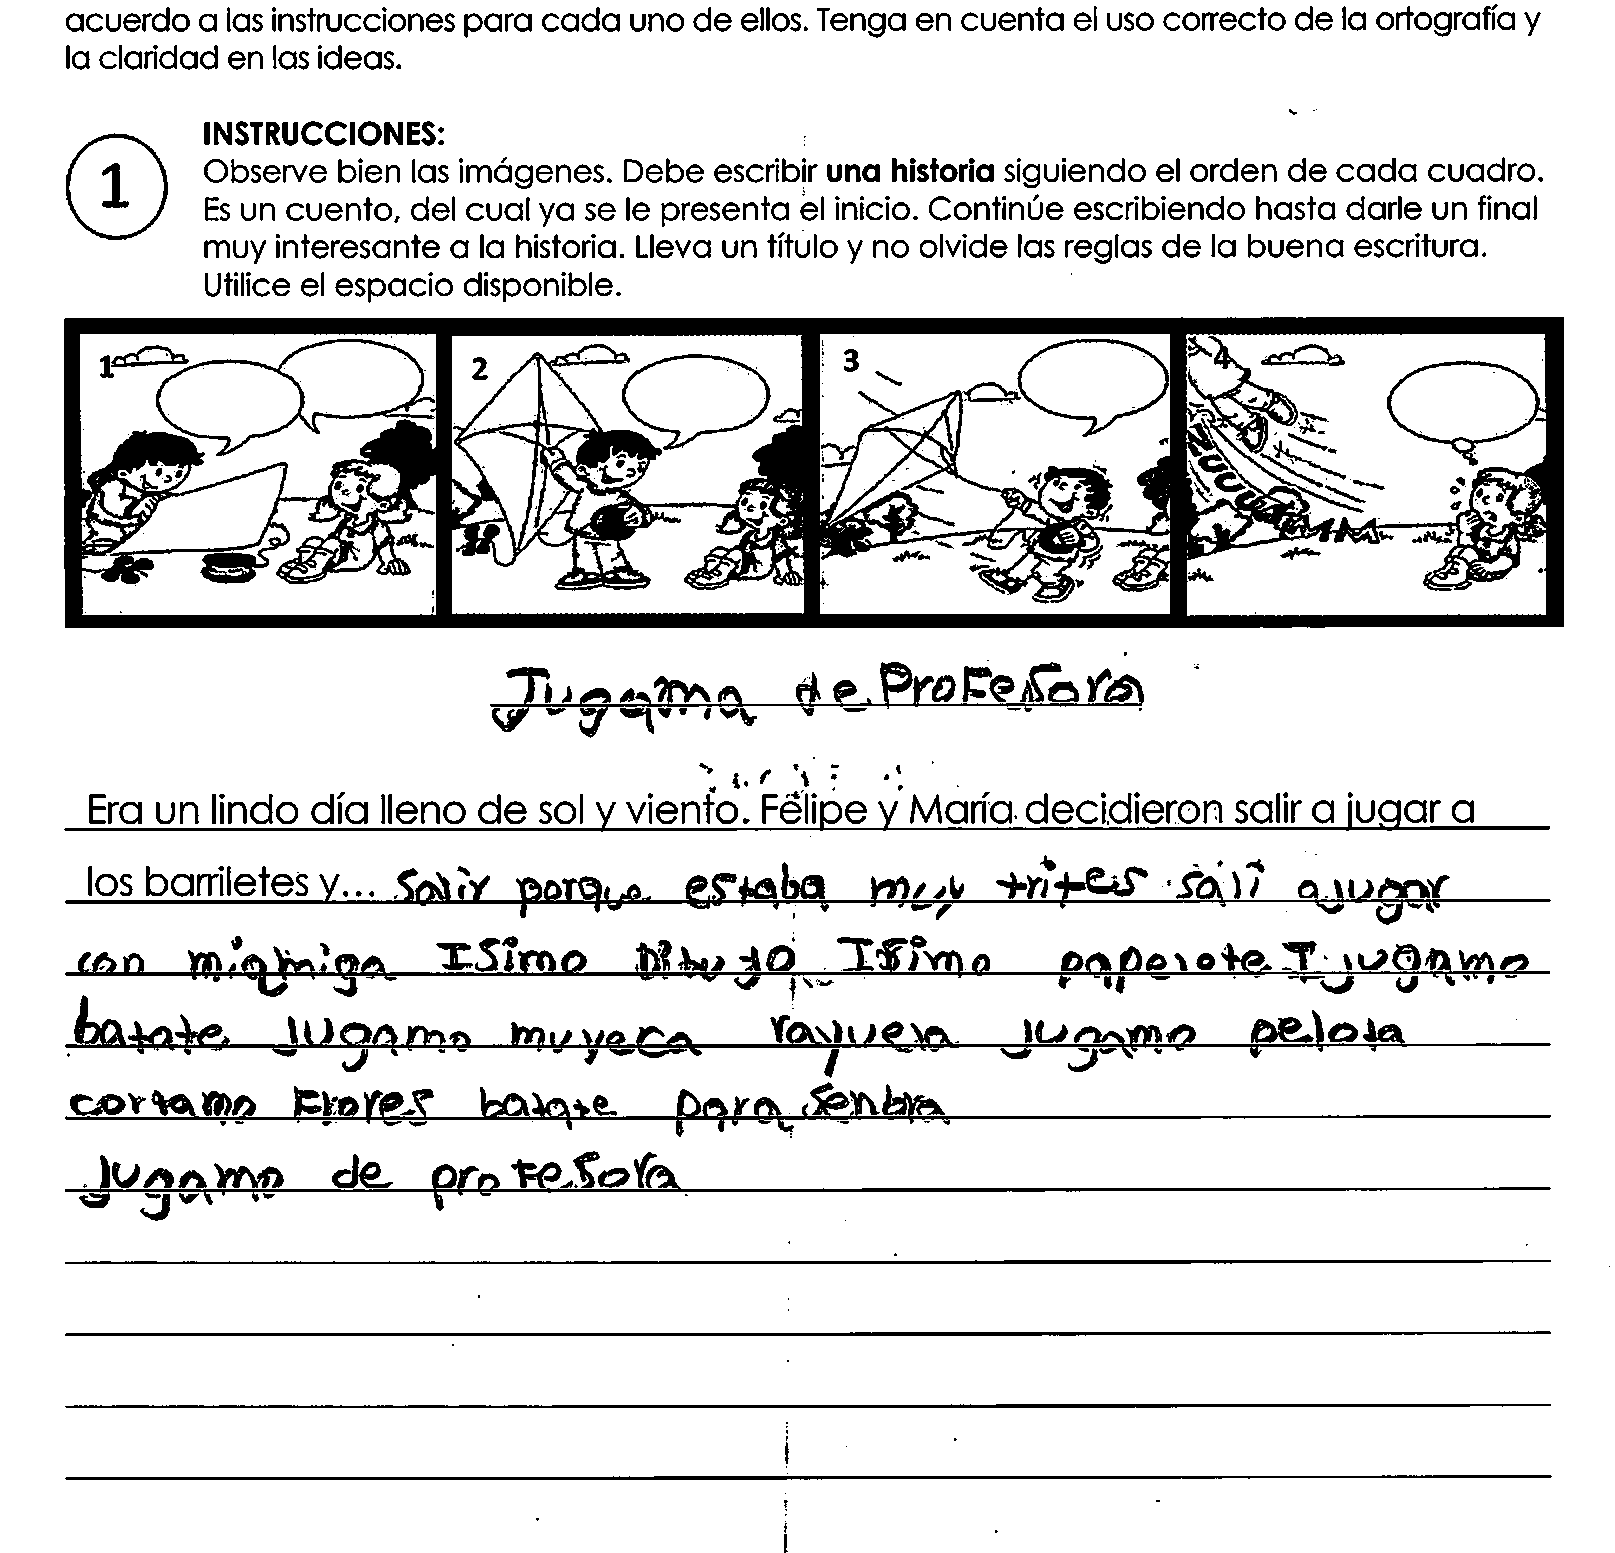 acuerdo a las instrucciones para cada uno de ellos. Tenga en cuenta el uso correcto de la ortografía y
la claridad en las ideas.
1
INSTRUCCIONES:
Observe bien las imágenes. Debe escribir una historia siguiendo el orden de cada cuadro.
Es un cuento, del cual ya se le presenta el inicio. Continúe escribiendo hasta darle un final
muy interesante a la historia. Lleva un título y no olvide las reglas de la buena escritura.
Utilice el espacio disponible.
1 2 3 4
ZUUUUMMM
Jugama de Profesora
Era un lindo día lleno de sol y viento. Felipe y María decidieron salir a jugar a
los barriletes y... Salir porque estaba muy trites sali ajugar
con miqmiga Isimo Dibujo Isimo paperote I jugamo
batate jugamo muyeca rayuela jugamo pelota
cortamo Flores batate para senbra
jugamo de profesora